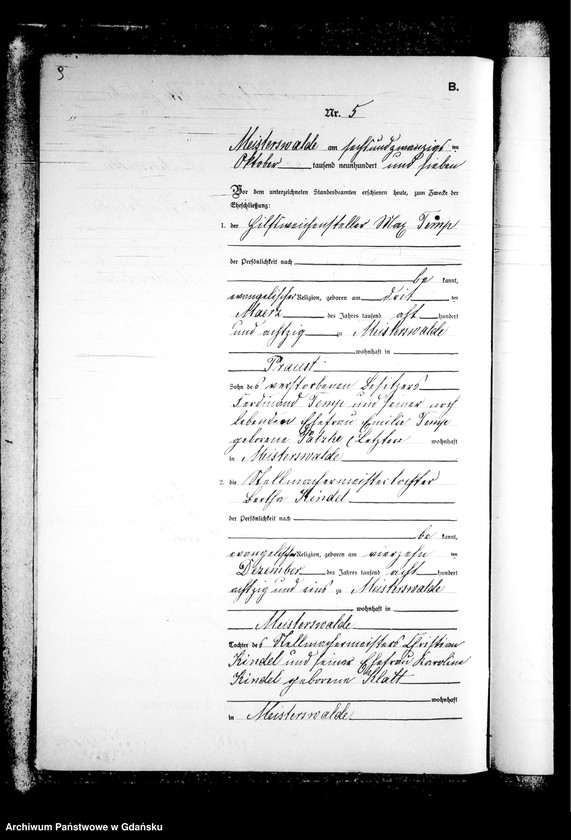 5
B.
Nr. 5
Meisterswalde am sechsundzwanzigs ten
Oktober tausend neunhundert und sieben
Vor dem unterzeichneten Standesbeamten erschienen heute, zum Zwecke der
Eheschließung:
1. der Hilfsweichensteller Max Temp
der Persönlichkeit nach
be kannt,
evangelischer Religion, geboren am drit ten
Maerz des Jahres tausend acht hundert
und achtzig zu Meisterswalde
wohnhaft in
Praust
Sohn des verstorbenen Besitzers
Ferdinand Temp und seiner noch
lebenden Ehefrau Emilie Temp
geborene letztere wohnhaft
in Meisterswalde
2. die Stellmachermeistertochter
Bertha Kindel
der Persönlichkeit nach
be kannt,
evangelischer Religion, geboren am vierzehn ten
Dezember des Jahres tausend acht hundert
achtzig und eins zu Meisterswalde
wohnhaft in
Meisterswalde
Tochter des Stellmachermeisters Christian
Kindel und seiner Ehefrau Karoline
Kindel geborene Klatt
wohnhaft
in Meisterswalde
Archiwum Państwowe w Gdańsku